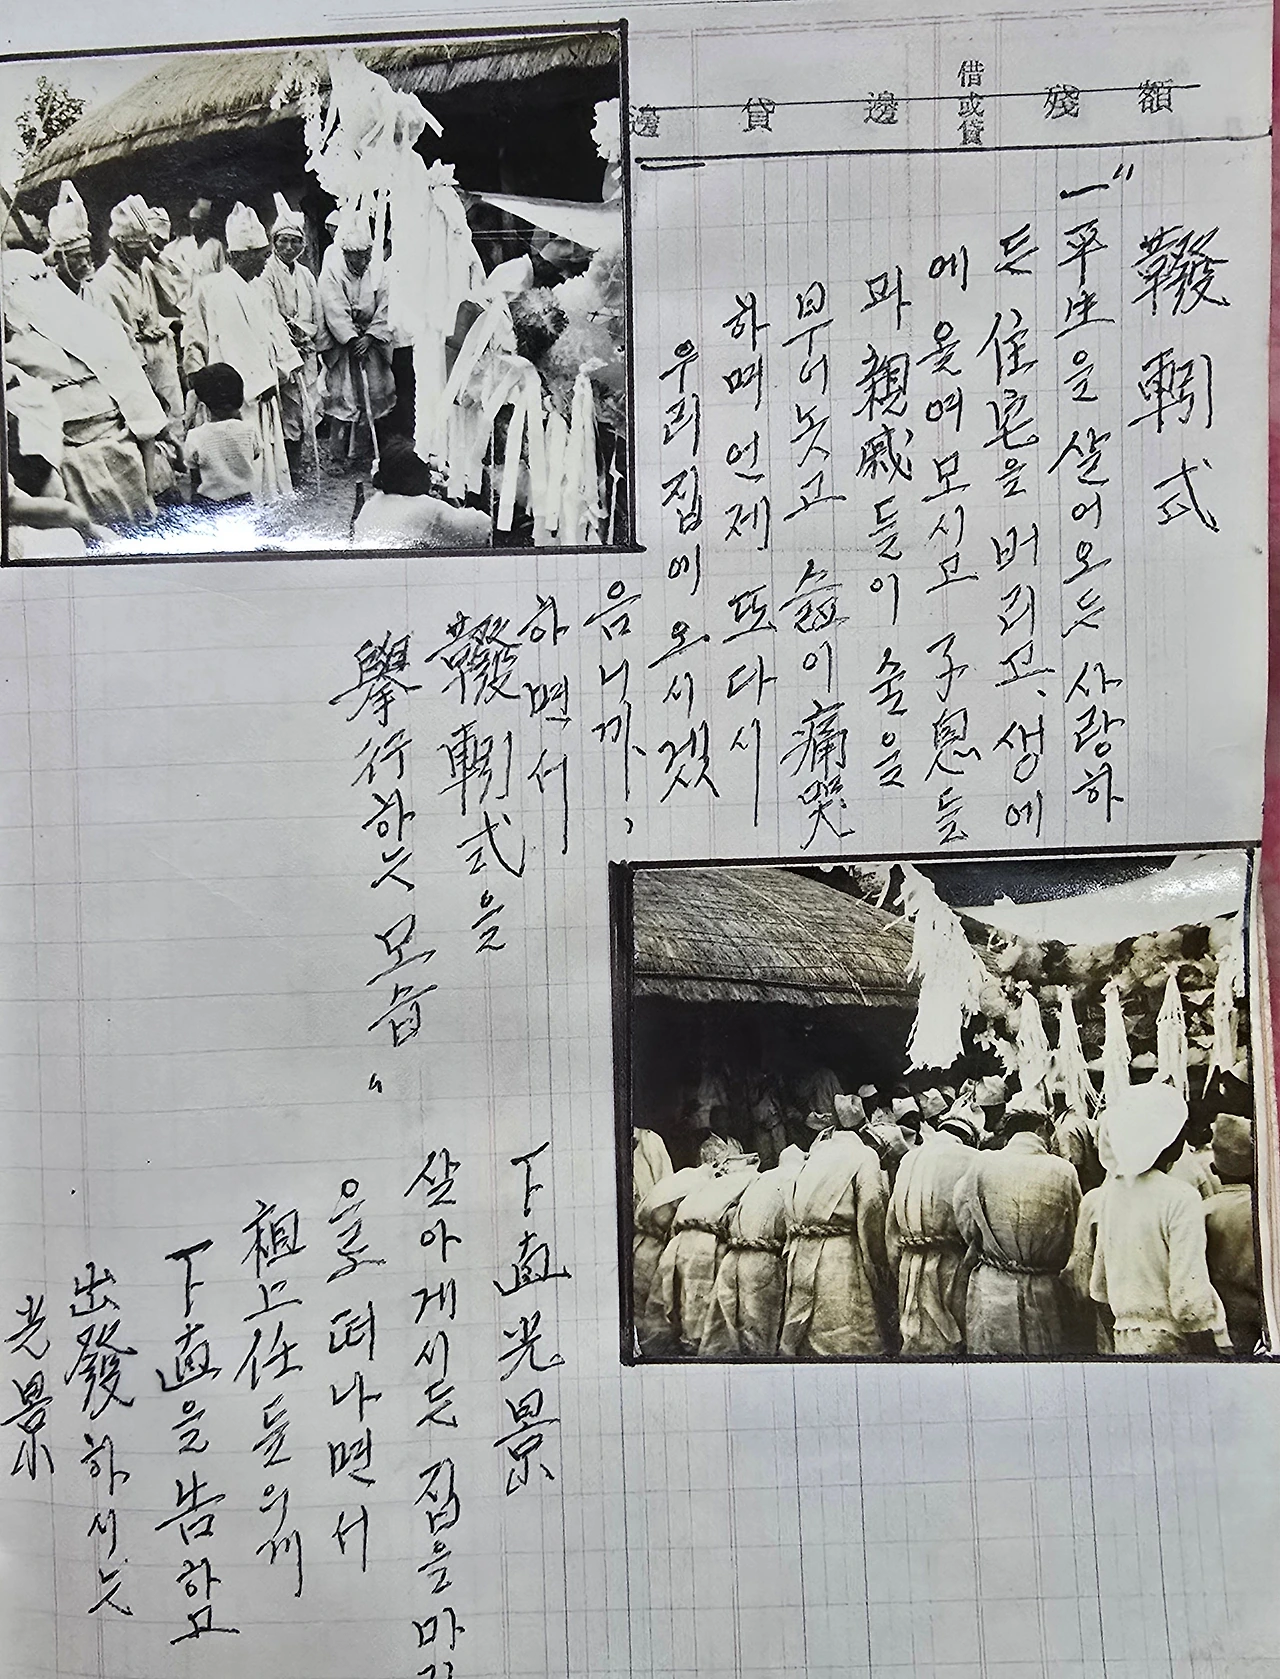 邊 貸邊 借或貸 殘額
發靷式
"一平生을 살어오든 사랑하
든 住宅을 버리고, 생에
에 옳여모시고 子息들
과 親戚들이 술을
부어놋고 슲이 痛哭
하며 언제 또다시
우리집에 오시겠
음니까,,
하면서
發靷式을
擧行하는 모습"
下直光景
살아게시든 집을 마
으로 떠나면서
祖上任들의게
下直을 告하고
出發하시는
光景